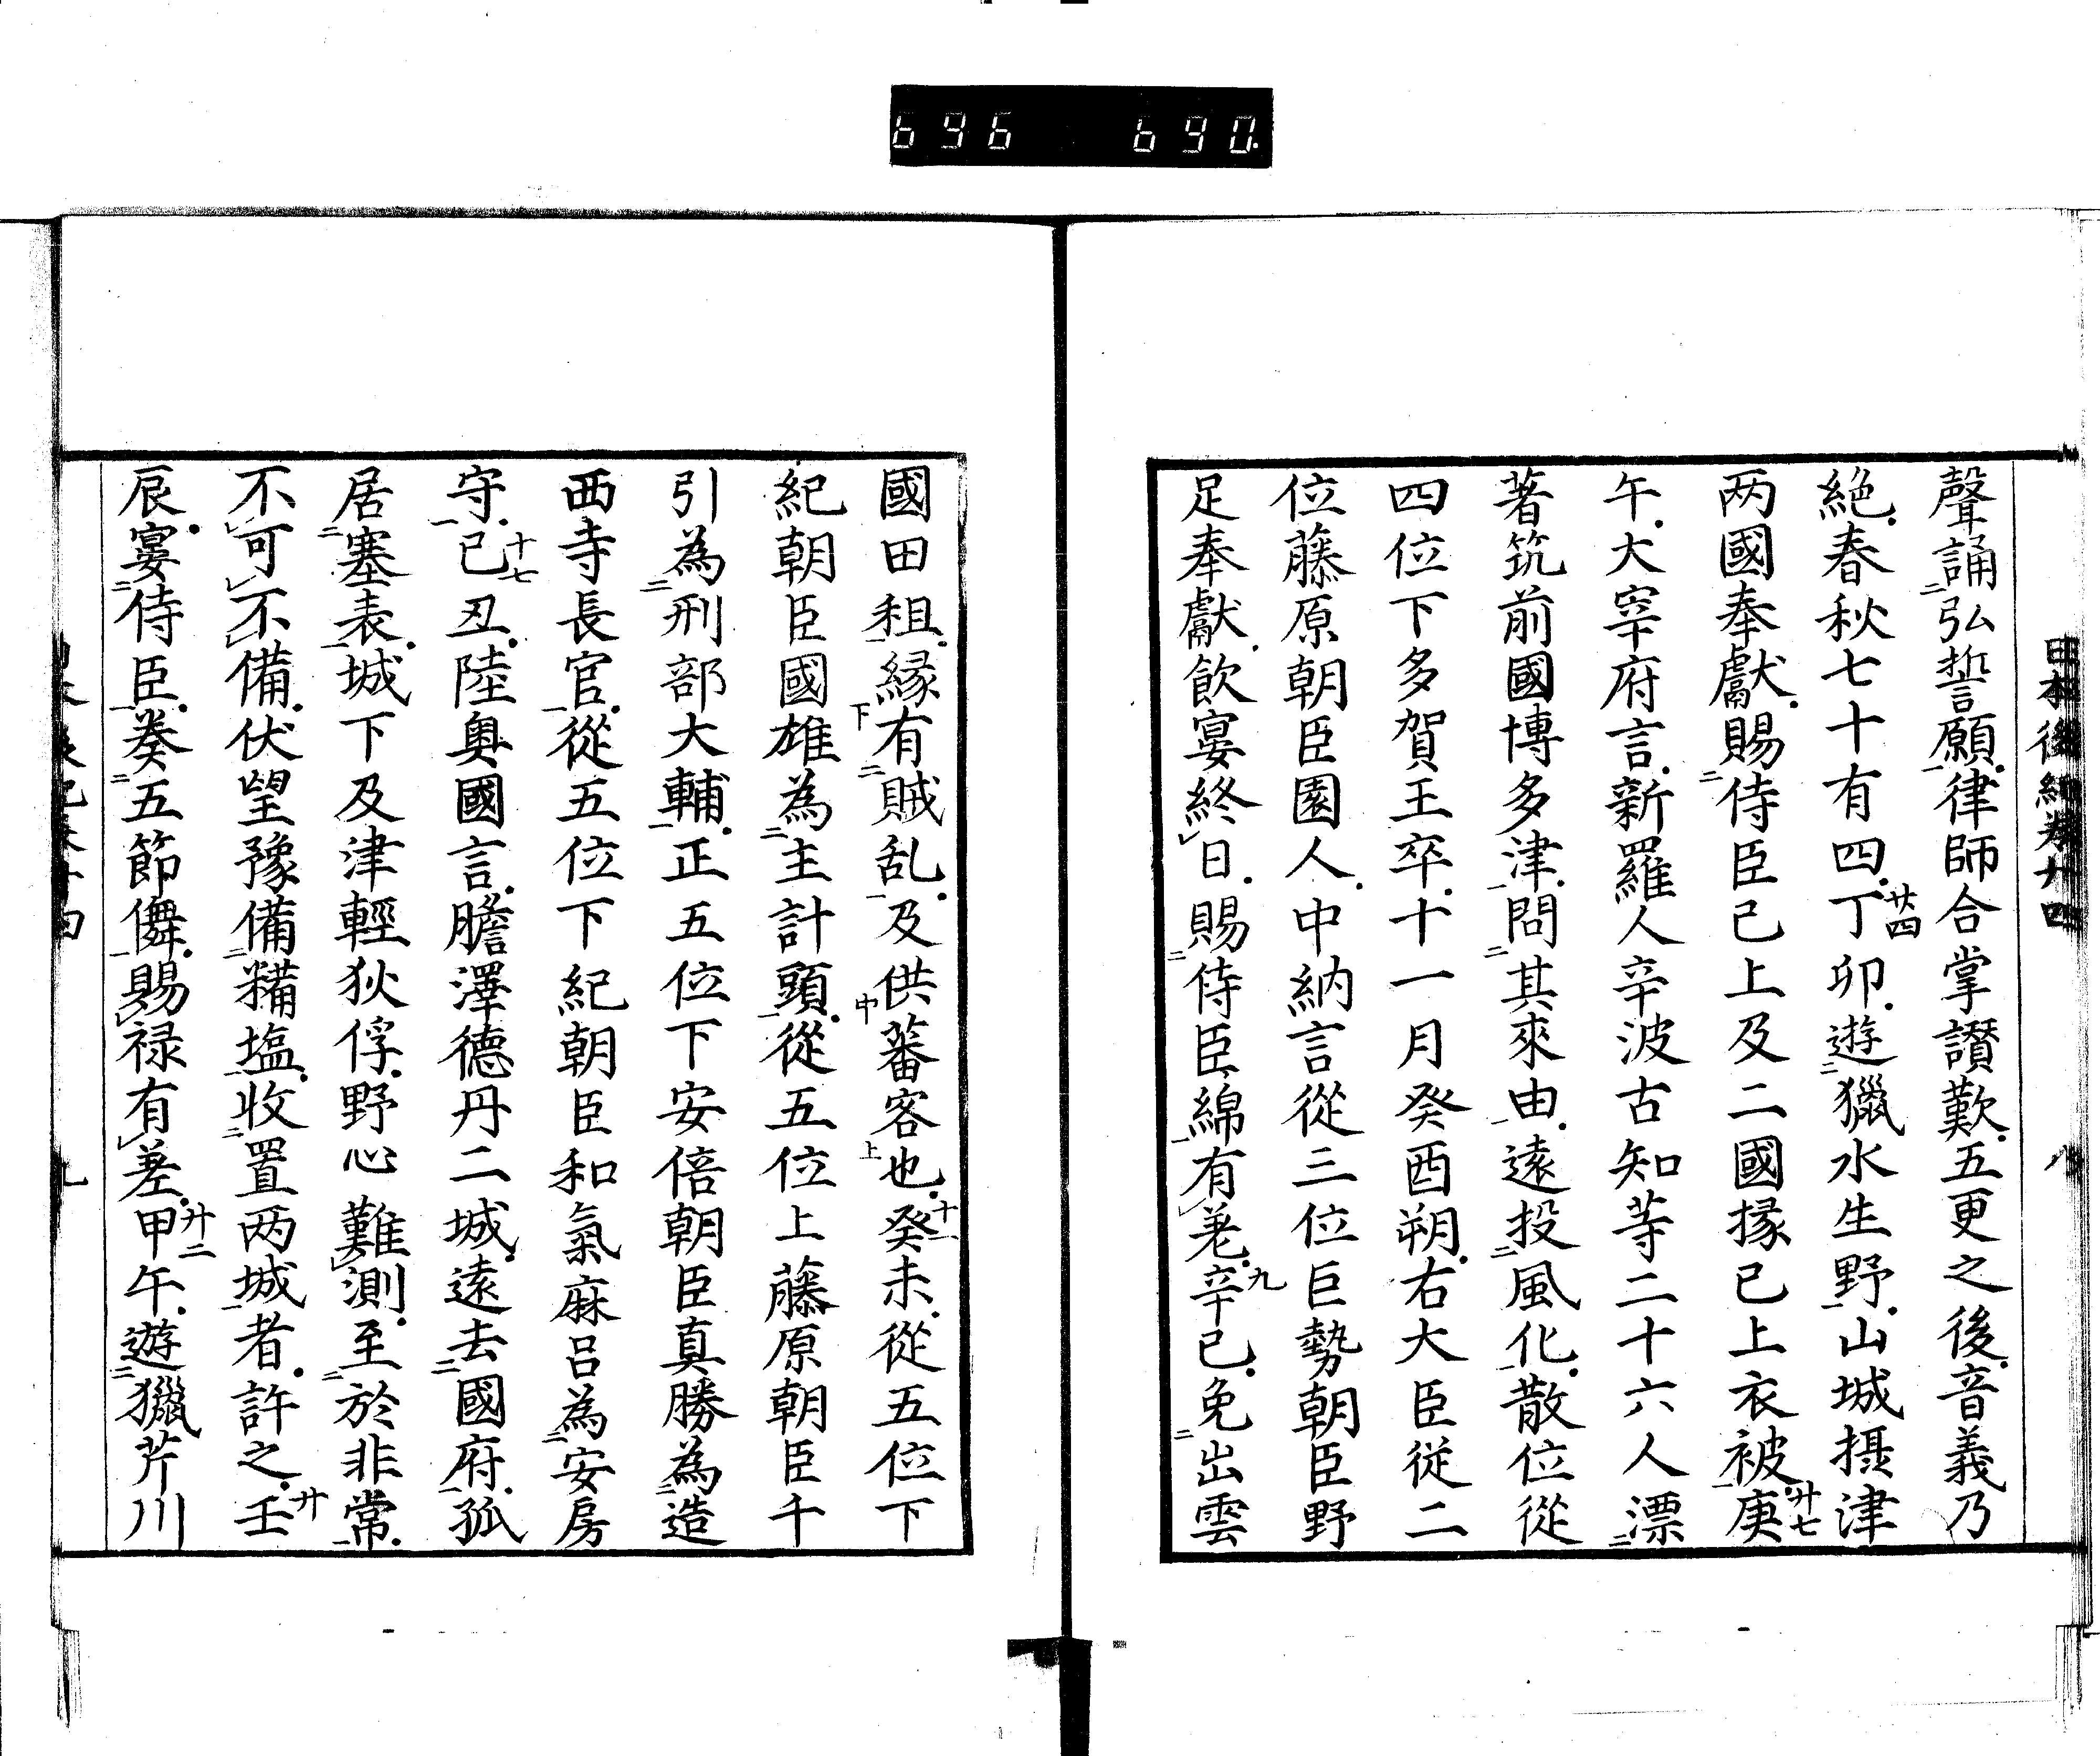 696 690.
日本後紀卷廿四 八
聲誦弘誓願律師合掌讃歎五更之後音義乃
絶春秋七十有四丁卯遊獵水生野山城摂津
两國奉獻賜侍臣己上及二國掾已上衣被庚
午大宰府言新羅人辛波古知等二十六人漂
著筑前國博多津問其來由遠投風化散位從
四位下多賀王卒十一月癸酉朔右大臣従二
位藤原朝臣園人中納言從三位巨勢朝臣野
足奉獻飲宴終日賜侍臣綿有差辛已免出雲
國田租縁有賊乱及供蕃客也癸未從五位下
紀朝臣國雄為主計頭從五位上藤原朝臣千
引為刑部大輔正五位下安倍朝臣真勝為造
西寺長官從五位下紀朝臣和氣麻呂為安房
守己丑陸奥國言膽澤德丹二城遠去國府孤
居塞表城下及津輕狄俘野心難測至於非常
不可不備伏望豫備糒塩收置两城者許之壬
辰宴侍臣奏五節儛賜禄有差甲午遊獵芹川